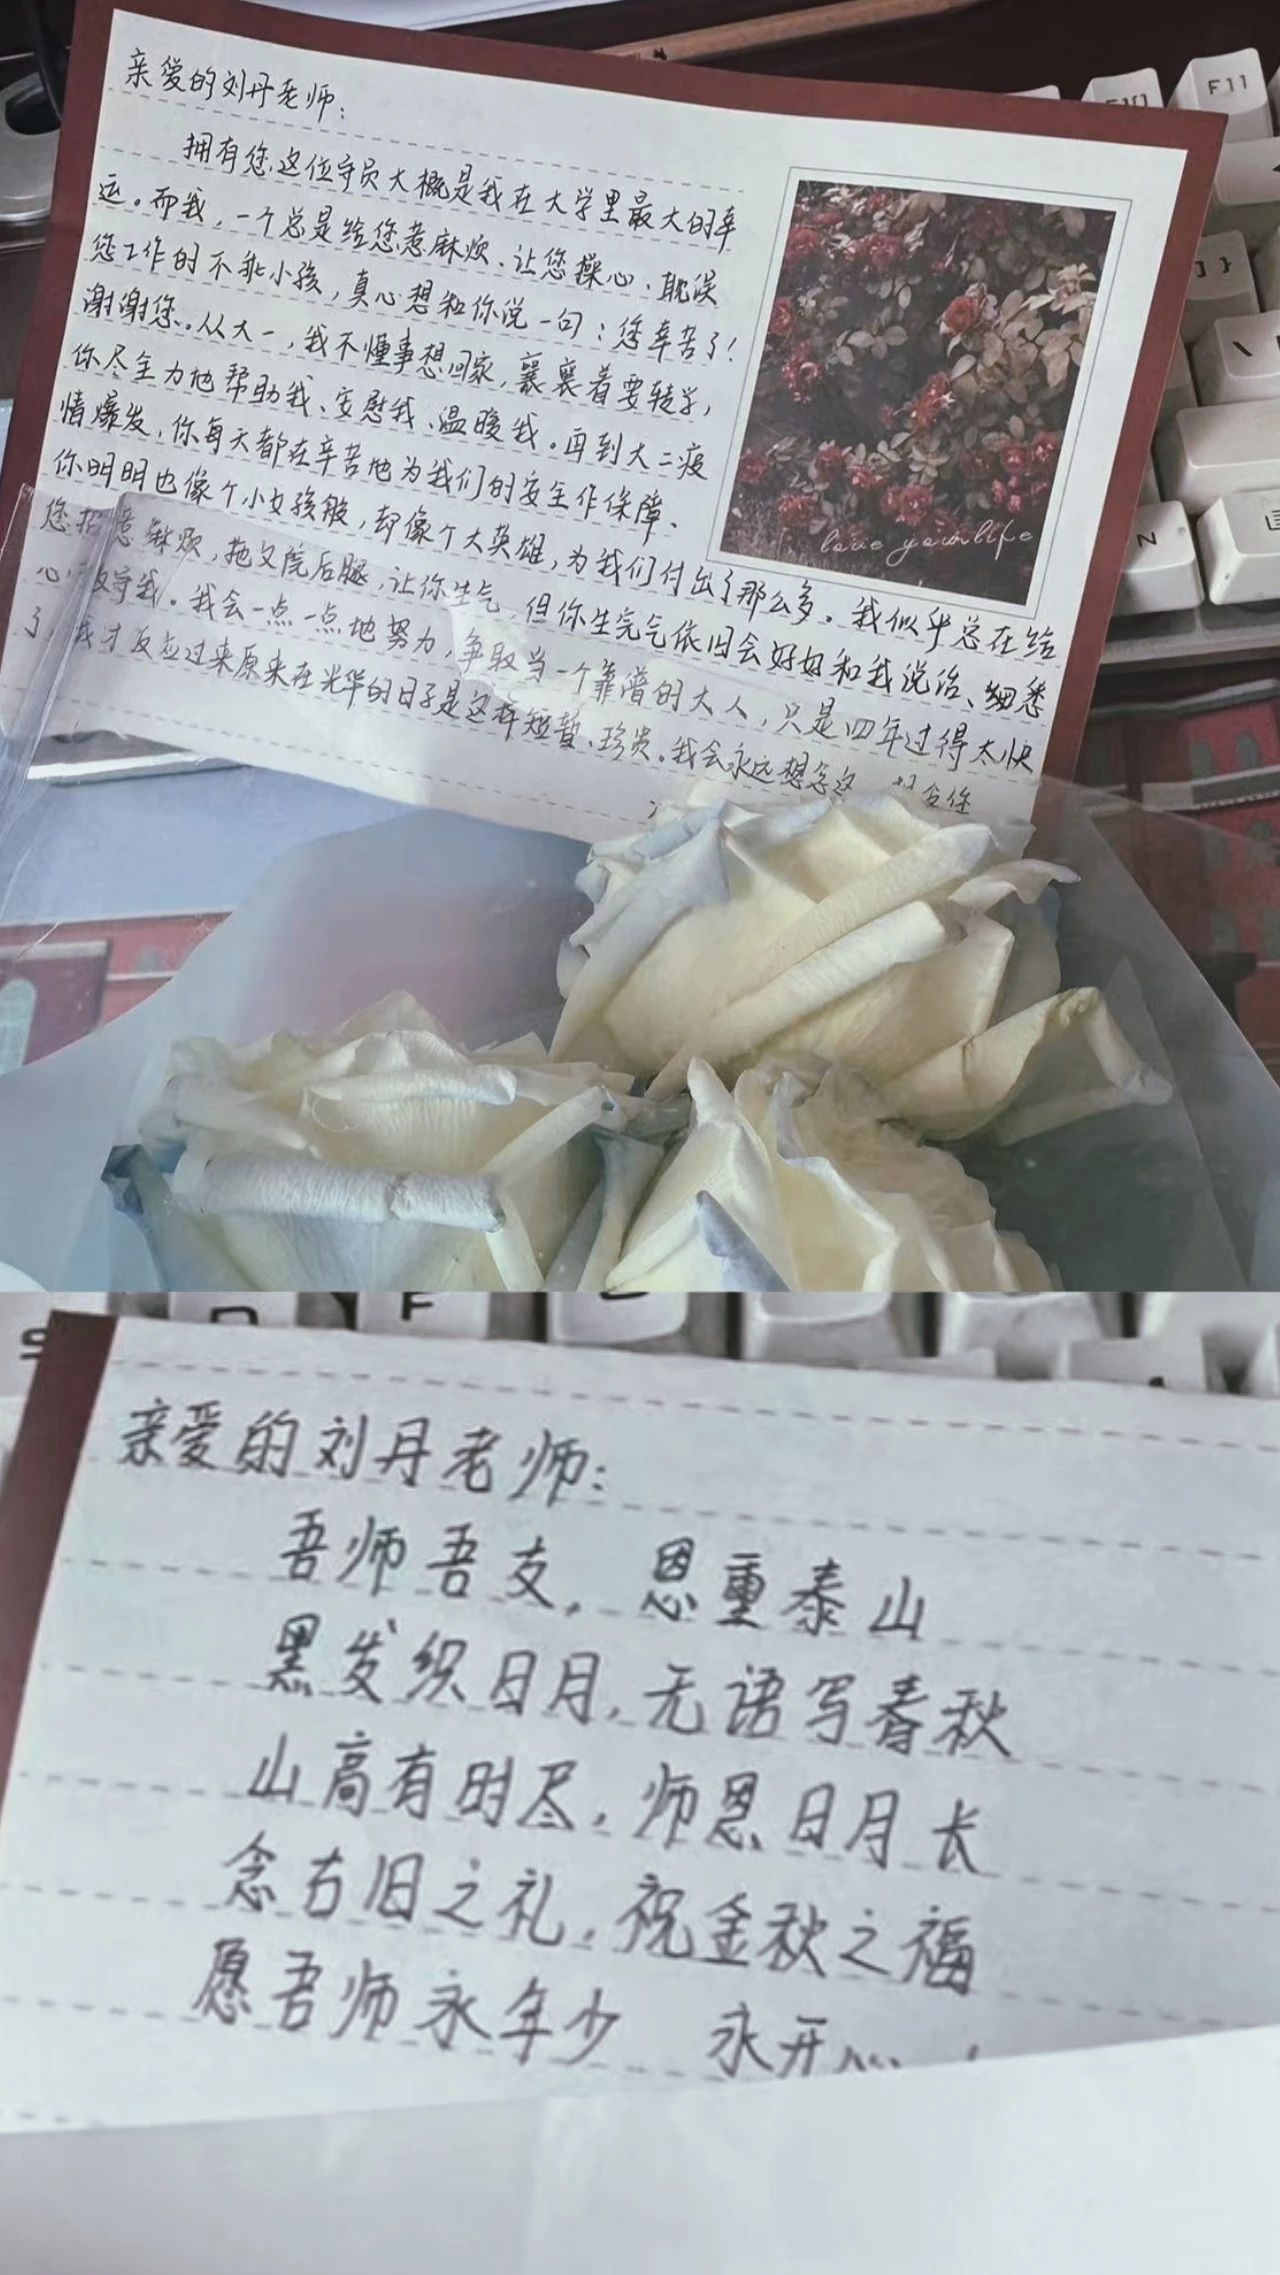 亲爱的刘丹老师：
拥有您这位守员大概是我在大学里最大的幸
运。而我，一个总是给您惹麻烦、让您操心、耽误
您工作的不乖小孩，真心想和你说一句：您辛苦了！
谢谢您。从大一，我不懂事想回家，襄襄着要转学，
你尽全力地帮助我、安慰我、温暖我。再到大二疫
情爆发，你每天都在辛苦地为我们的安全作保障、
你明明也像个小女孩般，却像个大英雄，为我们付出了那么多。我似乎总在给
您招惹麻烦，拖文院后腿，让你生气，但你生完气依旧会好好和我说话、细悉
心教导我。我会一点一点地努力，争取当一个靠谱的大人，只是四年过得太快
了，我才反应过来原来在光华的日子是这样短暂、珍贵。我会永远想念这
love your life
F11
] }
\
N
亲爱的刘丹老师：
吾师吾友，恩重泰山
黑发织日月，无语写春秋
山高有时尽，师恩日月长
念古旧之礼，祝金秋之福
愿吾师永年少 永开心
F